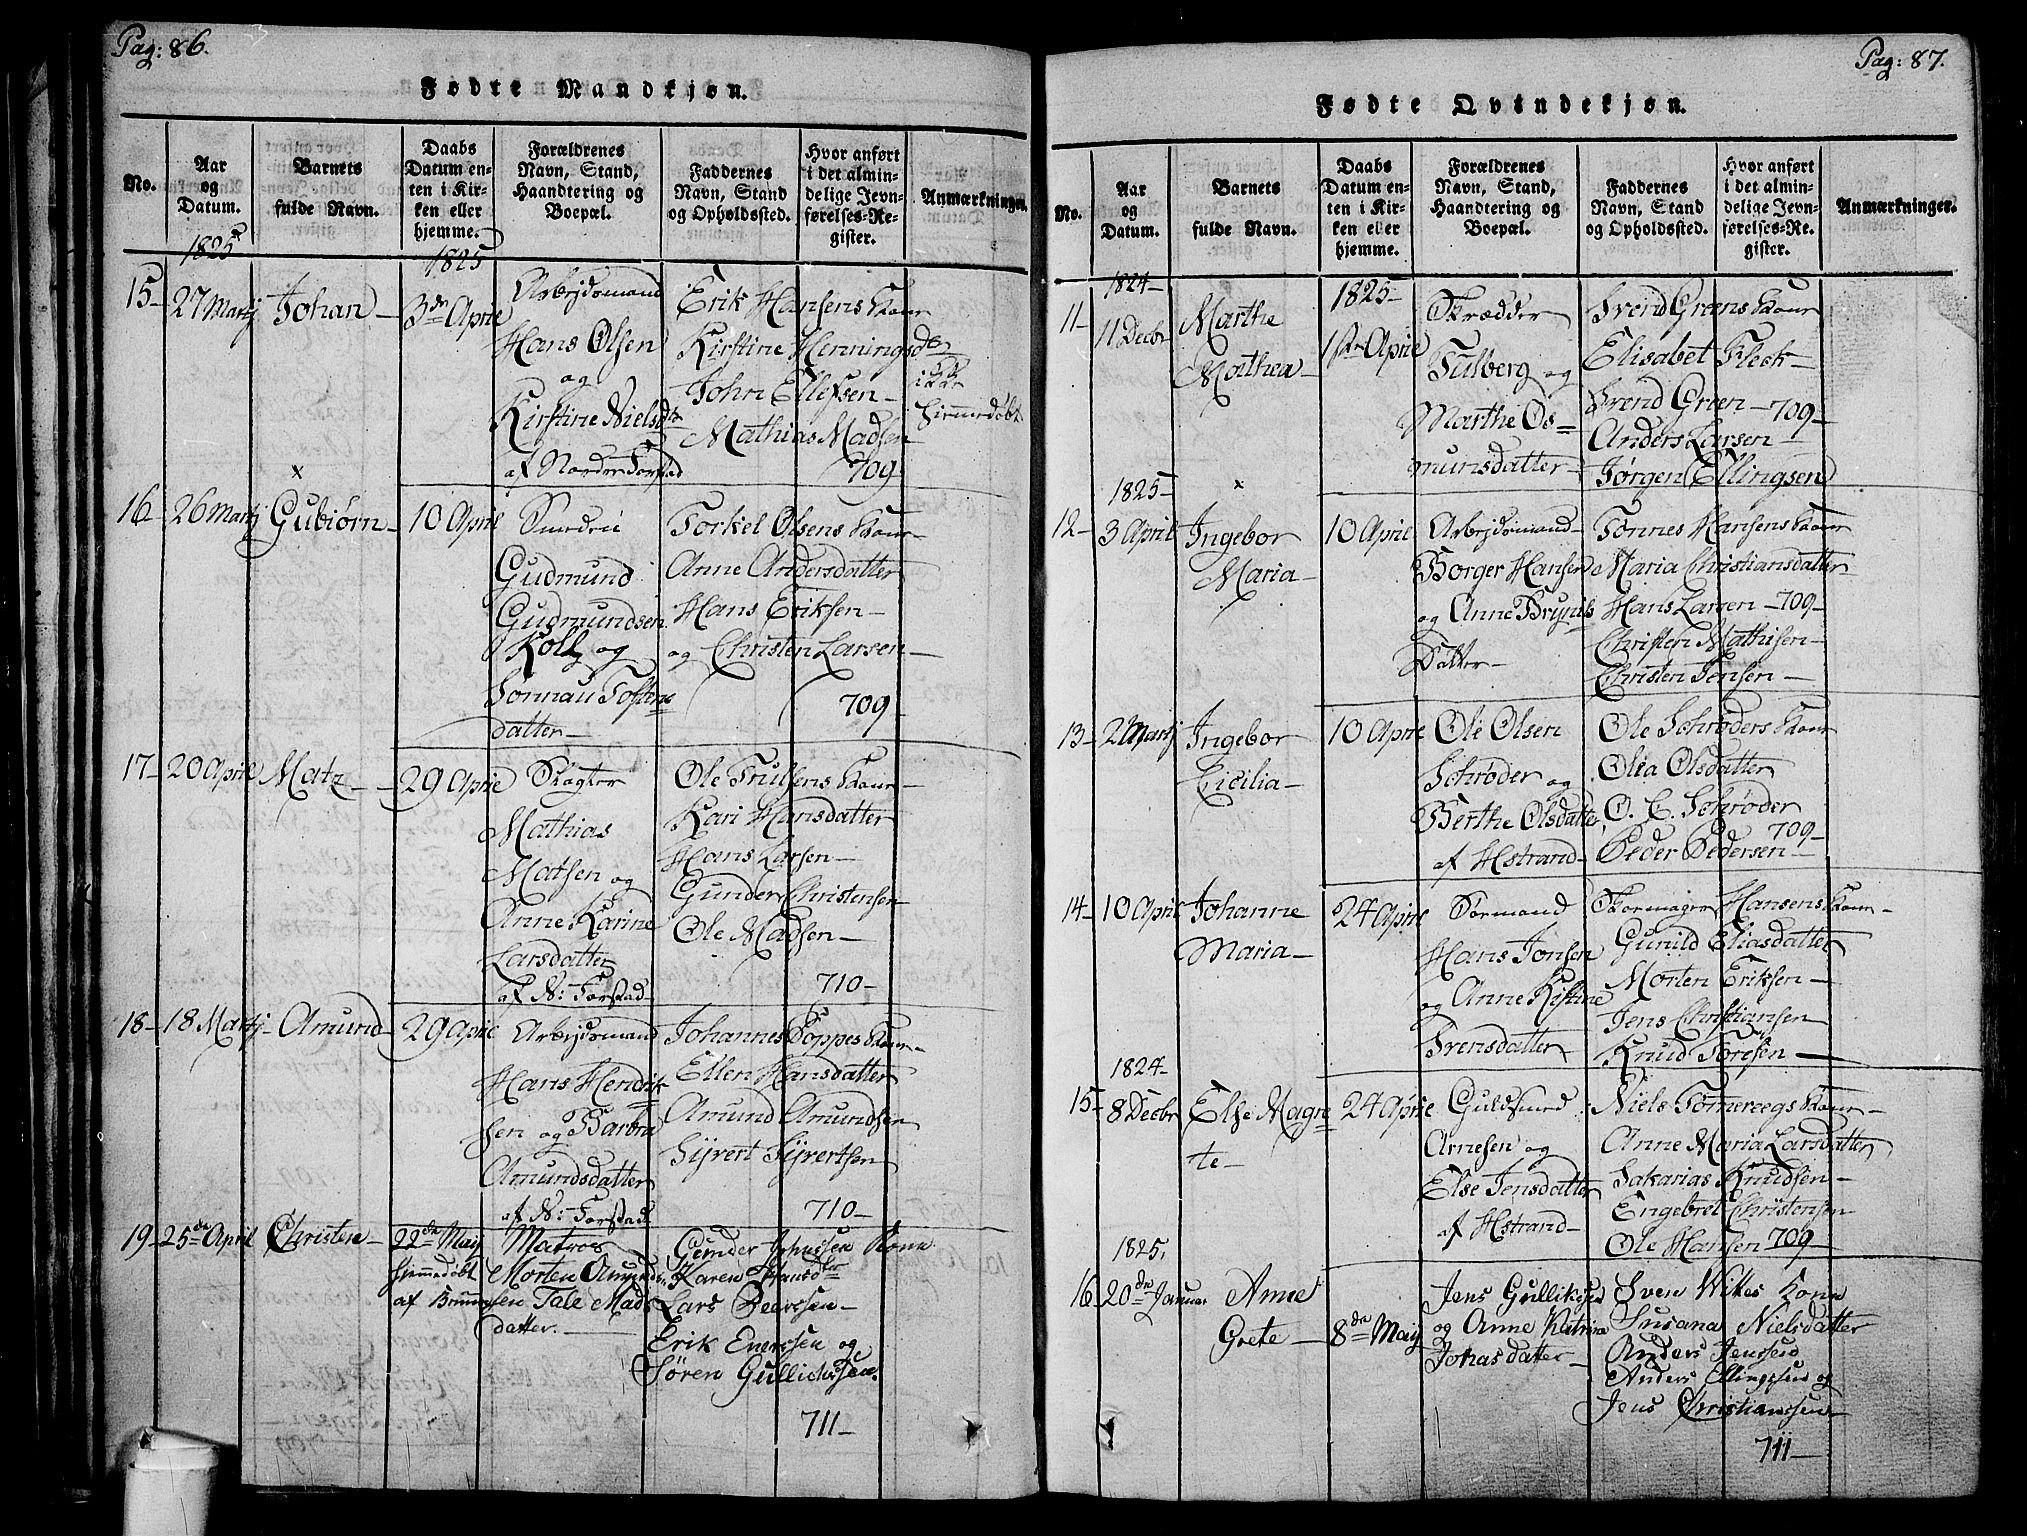 Pag: 86.
Fødte Mandkjøn.
No.
Aar
og
Datum.
Barnets
fulde Navn.
Daabs
Datum en-
ten i Kir-
ken eller
hjemme.
Forældrenes
Navn, Stand,
Haandtering og
Boepæl.
Faddernes
Navn, Stand
og Opholdssted.
Hvor anført
i det almin-
delige Jevn-
førelses-Re-
gister.
Anmærkninger.
1825
1825
15-
27 Martj
Johan-
3de Aprie
Arbejdsmand
Hans Olsen
og
Kirstine Nielsdtr
af Norder Forstad
Erik Hansens Kone
Kirstine Henningsdtr
John Ellefsen-
Mathias Madsen
709
hiemmedøbt
x
16-
26 Martj
Gubiørn-
10 April
Smeden
Gudmund
Gudmundsen
Kolbg og
Sonnau Tosten=
datter-
Torkel Olsens Kone-
Anne Andersdatter
Hans Eriksen-
og Christen Larsen-
709-
17-
20 April
Matz--
29 Aprie
Slagter
Mathias
Matsen og
Anne Karine
Larsdatter
af N: Forstad-
Ole Trulsens Kone-
Kari Hansdatter
Hans Larsen-
Gunder Christensen
Ole Madsen-
710-
18-
18 Martj-
Amund-
29 Aprie
Arbejdsmand
Hans Hendrik=
sen og Barbra
Amundsdatter
af N: Forstad
Johannes Poppes Kone-
Ellen Hansdatter
Amund Amundsen
Sijvert Sijvertsen
710-
19-
25de April
Christen-
22de Maij
hjemmedøbt
af
Matros
Morten Amund=
sen Tale Mads
datter.-
Gunder Johnssen Kone
Karen Hansdtr
Lars Peerssen-
Erik Everssen og
Søren Gullichssen.
711-
Pag: 87.
Fødte Qvindekjøn.
No.
Aar
og
Datum.
Barnets
fulde Navn.
Daabs
Datum en-
ten i Kir-
ken eller
hjemme.
Forældrenes
Navn, Stand,
Haandtering og
Boepæl.
Faddernes
Navn, Stand
og Opholdssted.
Hvor anført
i det almin-
delige Jevn-
førelses-Re-
gister.
Anmærkninger.
1824-
1825-
11-
11 Decbr
Marthe
Mathea-
1ste Aprie
Skrædder
Tulberg og
Marthe Os=
munsdatter-
Svend Grøns Kone
Elisabet Fleck-
Svend Grøen-709-
Anders Larsen-
Jørgen Ellingsen
1825-
x
12-
3 April
Ingebor
Maria-
10 Aprie
Arbejdsmand
Borger Hansen
og Anne Bryuls
Datter-
Tønnes Hansens Kone
Maria Christiansdatter-
Hans Larsen-709-
Christen Mathisen-
Christen Jensen-
13-
2 Martj
Ingebor
Cicilia-
10 Aprie
Ole Olsen
Schrøder og
Berthe Olsdatter
af Hstrand-
Ole Schrøders Kone
Olea Olsdatter
O. C. Schrøder
709-
Peder Pedersen-
14-
10 April
Johanne
Maria-
24 Aprie
Sørmand
Hans Jonsen
og Anne Kistine
Svensdatter
Skomager Hansens Kone-
Gunild Eliasdatter
Morten Eriksen-
Jens Christiansen
Knud Toresen-
1824-
15-
8 Decbr
Else Magre
te-
24 Aprie
Guldsmed
Arnesen og
Else Jensdatter
af Hstrand-
Niels Tømeraegs Kone-
Anne Maria Larsdatter
Sakarias Knudsen-
Engebret Christensen
Ole Hansen 709-
1825,
16-
20de Januar
Anne
Grete-
8de Maij
Jens Gulliksen
og Anne Katrina
Johasdatter-
Sven Wikes Kone
Susana Nielsdatter
Anders Jenssen
Anders Ellingssen og
Jens Christianssen-
711-